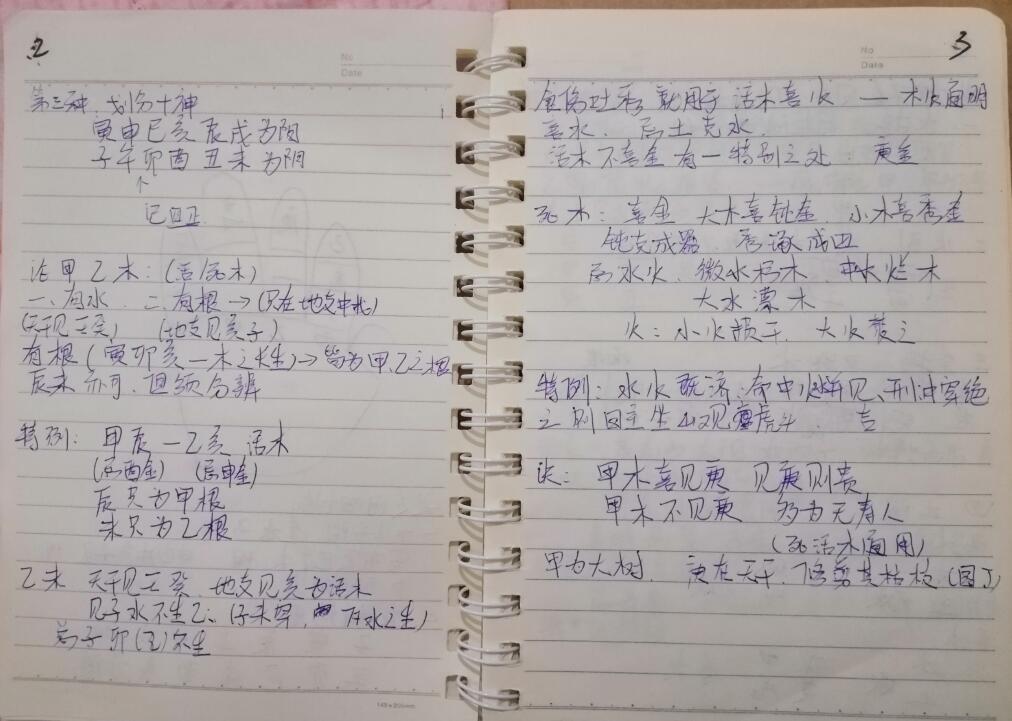 2
No
Date
第三种. 划分十神
寅申巳亥辰戌为阳
子午卯酉丑未为阴
↑
论甲乙木: (活/死木)
一、有水. 二、有根→(只在地支中找)
(天干见壬癸) (地支见亥子)
有根(寅卯亥—木之长生)→皆为甲、乙之根
辰未亦可, 但须分辨
特例: 甲辰—乙亥 活木
(忌酉金) (忌申金)
辰只为甲根
未只为乙根
乙未 天干见壬癸. 地支见亥为活木
见子水不生乙、(子未穿, 水之生)
若子卯 生
148×205mm
3
No
Date
食伤吐秀 就用于 活木喜火 — 木火通明
喜水. 忌土克水.
活木不喜金 有一特别之处: 庚金
死木: 喜金 大木喜钝金. 小木喜秀金
钝克成器. 秀
忌水火. 微水朽木. 中水烂木
大水漂木
火: 小火损干. 大火焚之
特例: 水火既济: 命中 见、刑冲穿绝
之则 主坐山观虎斗. 吉
诀: 甲木喜见庚 见庚则贵
甲木不见庚 多为无寿人
(死活木通用)
甲为大树. 庚在天干. 修剪其枯枝.